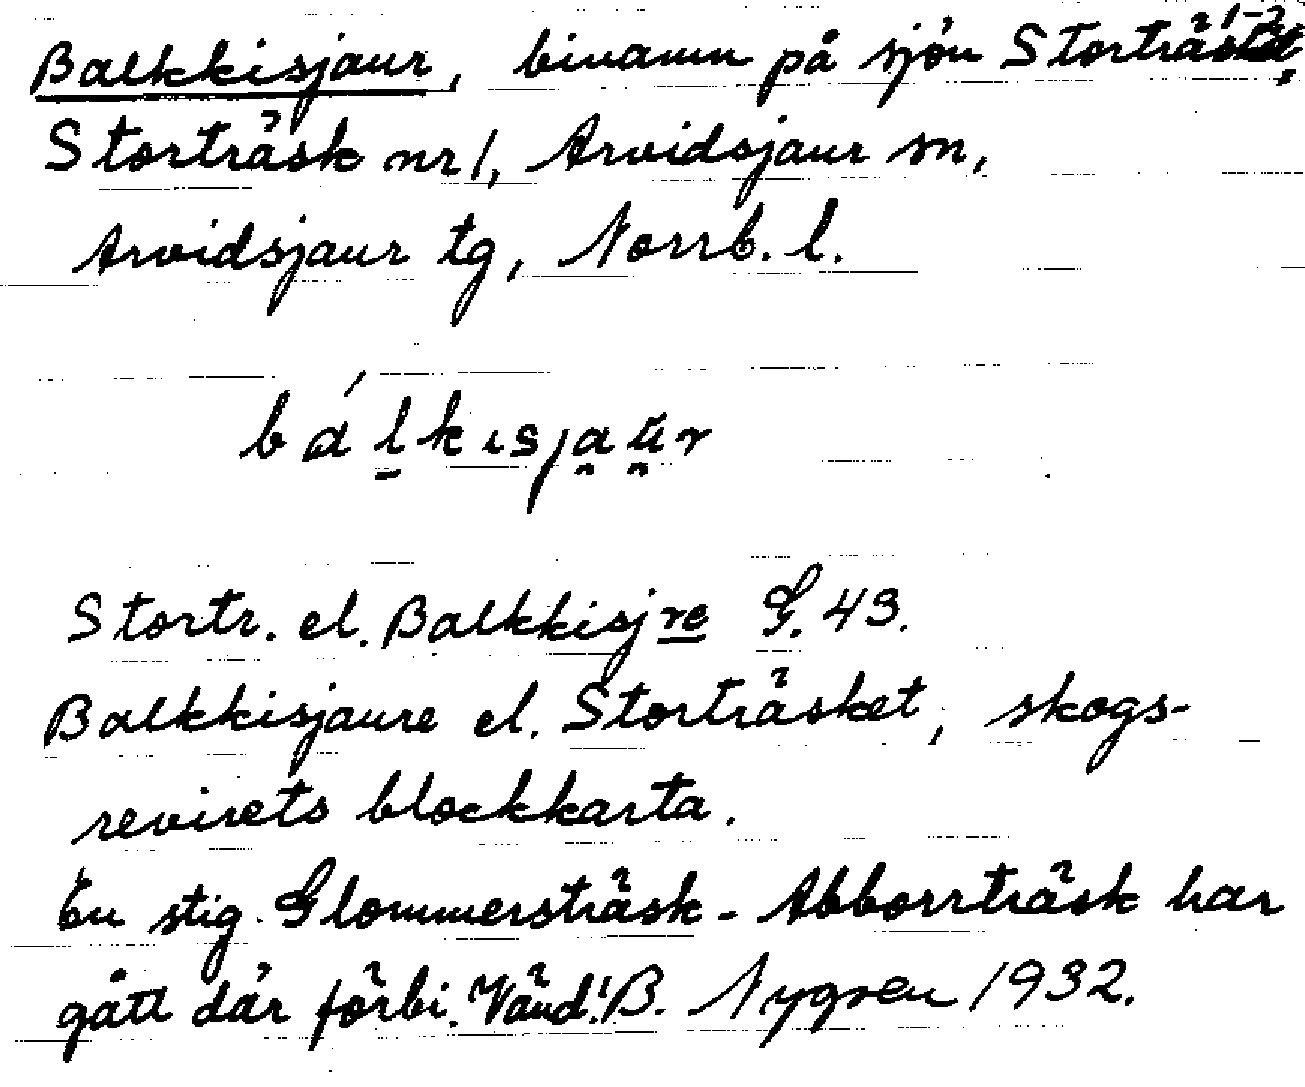 Balkkisjaur, binamn på sjön Storträsket 1-2,
Storträsk nr 1, Arvidsjaur sn,
Arvidsjaur tg, Norrb. l.
Stortr. el. Balkkisjre G. 43.
Balkkisjaure el. Storträsket, skogs-
revirets blockkarta.
En stig Glommersträsk - Abborrträsk har
gått där förbi. Vänd! B. Nygren 1932.